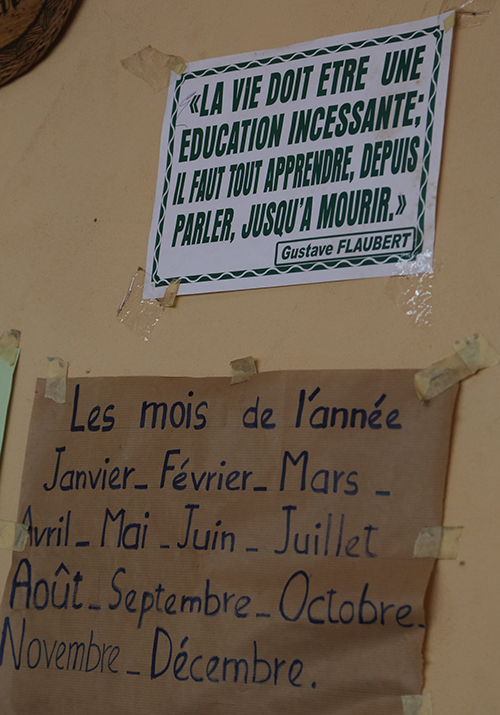 «LA VIE DOIT ETRE UNE
EDUCATION INCESSANTE;
IL FAUT TOUT APPRENDRE, DEPUIS
PARLER, JUSQU'A MOURIR.»
Gustave FLAUBERT
Les mois de l'année
Janvier_ Février_ Mars _
Avril_ Mai _ Juin _ Juillet
Août_ Septembre_ Octobre_
Novembre _ Décembre.